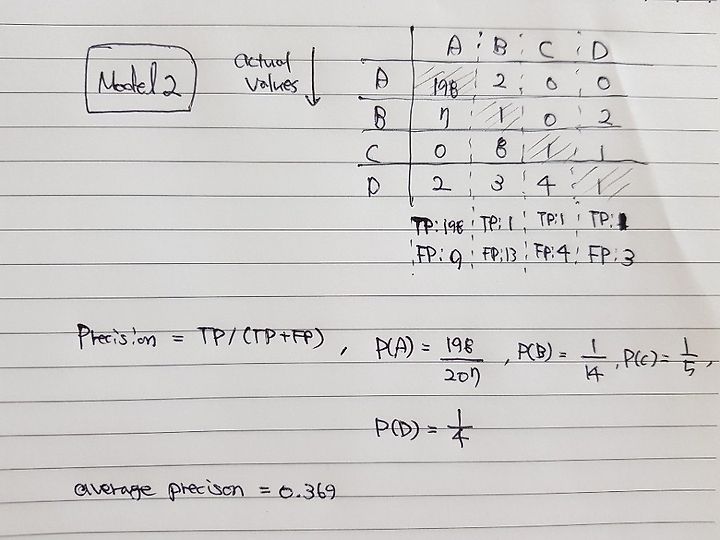 Model 2
actual values ↓
A B C D
A 198 2 0 0
B 7 1 0 2
C 0 8 1 1
D 2 3 4 1
TP: 198 TP: 1 TP: 1 TP: 1
FP: 9 FP: 13 FP: 4 FP: 3
Precision = TP/(TP+FP), P(A) = 198/207, P(B) = 1/14, P(C) = 1/5,
P(D) = 1/4
average precison = 0.369